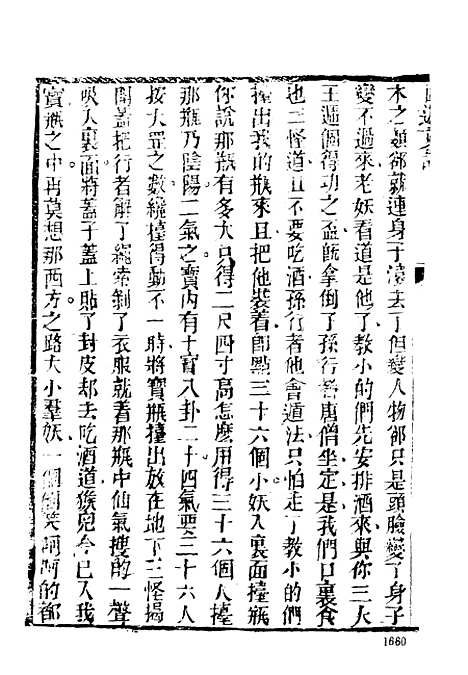 木之類却就連身子滾去了但變人物却只是頭臉變了身子
變不過來老妖看道是他了教小的們先安排酒來與你三大
王遞個得功之盃旣拿倒了孫行者唐僧坐定是我們口裏食
也三怪道且不要吃酒孫行者他會遁法只怕走了教小的們
擡出我的瓶來且把他裝着卽點三十六個小妖入裏面擡瓶
你說那瓶有多大只得二尺四寸高怎麼用得三十六個人擡
那瓶乃陰陽二氣之寶內有七寶八卦二十四氣要三十六人
按天罡之數纔擡得動不一時將寶瓶擡出放在地下三怪揭
開蓋把行者解了繩索剝了衣服就着那瓶中仙氣搜的一聲
吸入裏面將蓋子蓋上貼了封皮却去吃酒道猴兒今已入我
寶瓶之中再莫想那西方之路大小羣妖一個個笑呵呵的都
1660